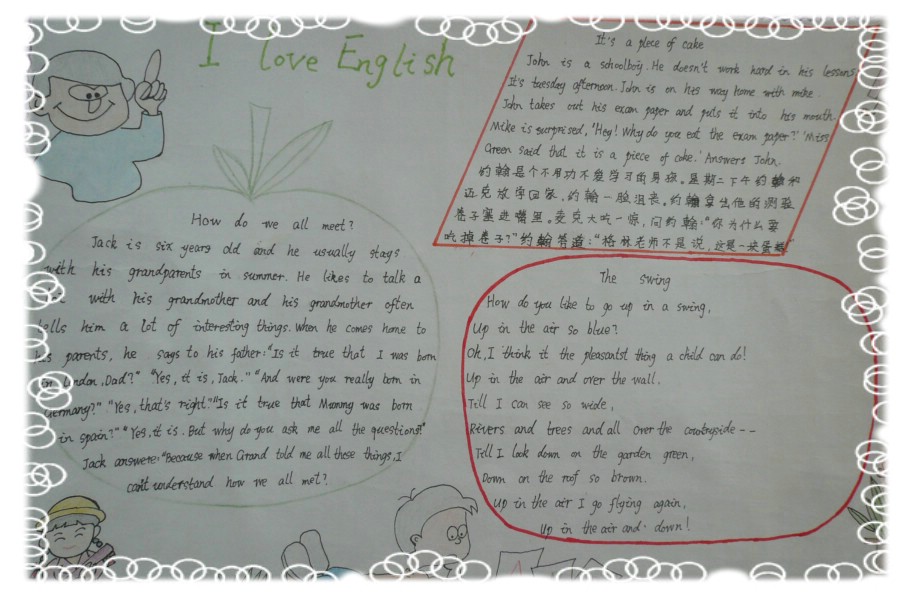 I love English
It's a piece of cake
John is a schoolboy. He doesn't work hard in his lessons
It's tuesday afternoon. John is on his way home with mike.
John takes out his exam paper and puts it into his mouth.
Mike is surprised, "Hey! Why do you eat the exam paper?" 'Miss
Green said that it is a piece of cake.' Answers John.
约翰是个不用功不爱学习的男孩。星期二下午约翰和
迈克放学回家。约翰一脸沮丧。约翰拿出他的测验
卷子塞进嘴里。麦克大吃一惊，问约翰："你为什么要
吃掉卷子?"约翰答道："格林老师不是说，这是一块蛋糕"
How do we all meet?
Jack is six years old and he usually stays
with his grandparents in summer. He likes to talk a
with his grandmother and his grandmother often
tells him a lot of interesting things. When he comes home to
his parents, he says to his father: "Is it true that I was born
in London, Dad?" "Yes, it is, Jack." "And were you really born in
Germany?" "Yes, that's right." "Is it true that Mummy was born
in spain?" "Yes, it is. But why do you ask me all the questions?"
Jack answers: "Because when Grand told me all those things, I
can't understand how we all met?.
The swing
How do you like to go up in a swing,
Up in the air so blue?
Oh, I think it the pleasantst thing a child can do!
Up in the air and over the wall.
Till I can see so wide,
Rivers and trees and all over the countryside--
Till I look down on the garden green,
Down on the roof so brown.
Up in the air I go flying again,
Up in the air and down!